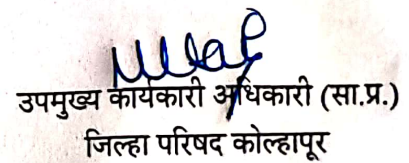 उपमुख्य कार्यकारी अधिकारी (सा.प्र.)
जिल्हा परिषद कोल्हापूर